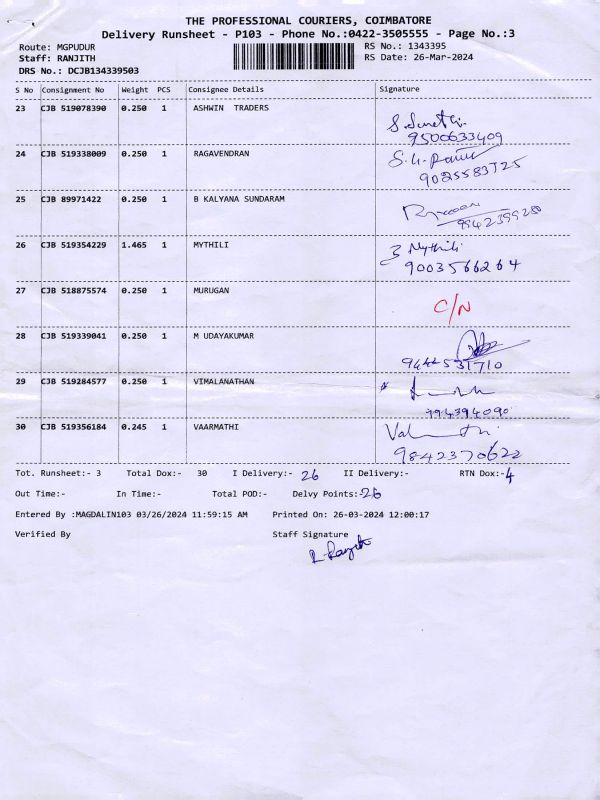 THE PROFESSIONAL COURIERS, COIMBATORE
Delivery Runsheet - P103 - Phone No.:0422-3505555 - Page No.:3
Route: MGPUDUR RS No.: 1343395
Staff: RANJITH RS Date: 26-Mar-2024
DRS No.: DCJB134339503
S No Consignment No Weight PCS Consignee Details Signature
23 CJB 519078390 0.250 1 ASHWIN TRADERS
9500633409
24 CJB 519338009 0.250 1 RAGAVENDRAN
9025583725
25 CJB 89971422 0.250 1 B KALYANA SUNDARAM
26 CJB 519354229 1.465 1 MYTHILI Mythili
9003566264
27 CJB 518875574 0.250 1 MURUGAN C/N
28 CJB 519339041 0.250 1 M UDAYAKUMAR
9444531710
29 CJB 519284577 0.250 1 VIMALANATHAN
994394090
30 CJB 519356184 0.245 1 VAARMATHI
9842370622
Tot. Runsheet:- 3 Total Dox:- 30 I Delivery:- 26 II Delivery:- RTN Dox:- 4
Out Time:- In Time:- Total POD:- Delvy Points:- 26
Entered By :MAGDALIN103 03/26/2024 11:59:15 AM Printed On: 26-03-2024 12:00:17
Verified By Staff Signature
R. Ranjith